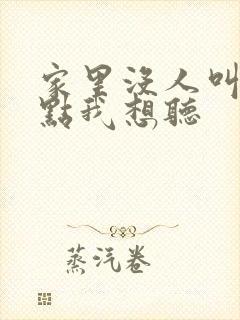 家里没人叫
點我想聽
蒸汽卷